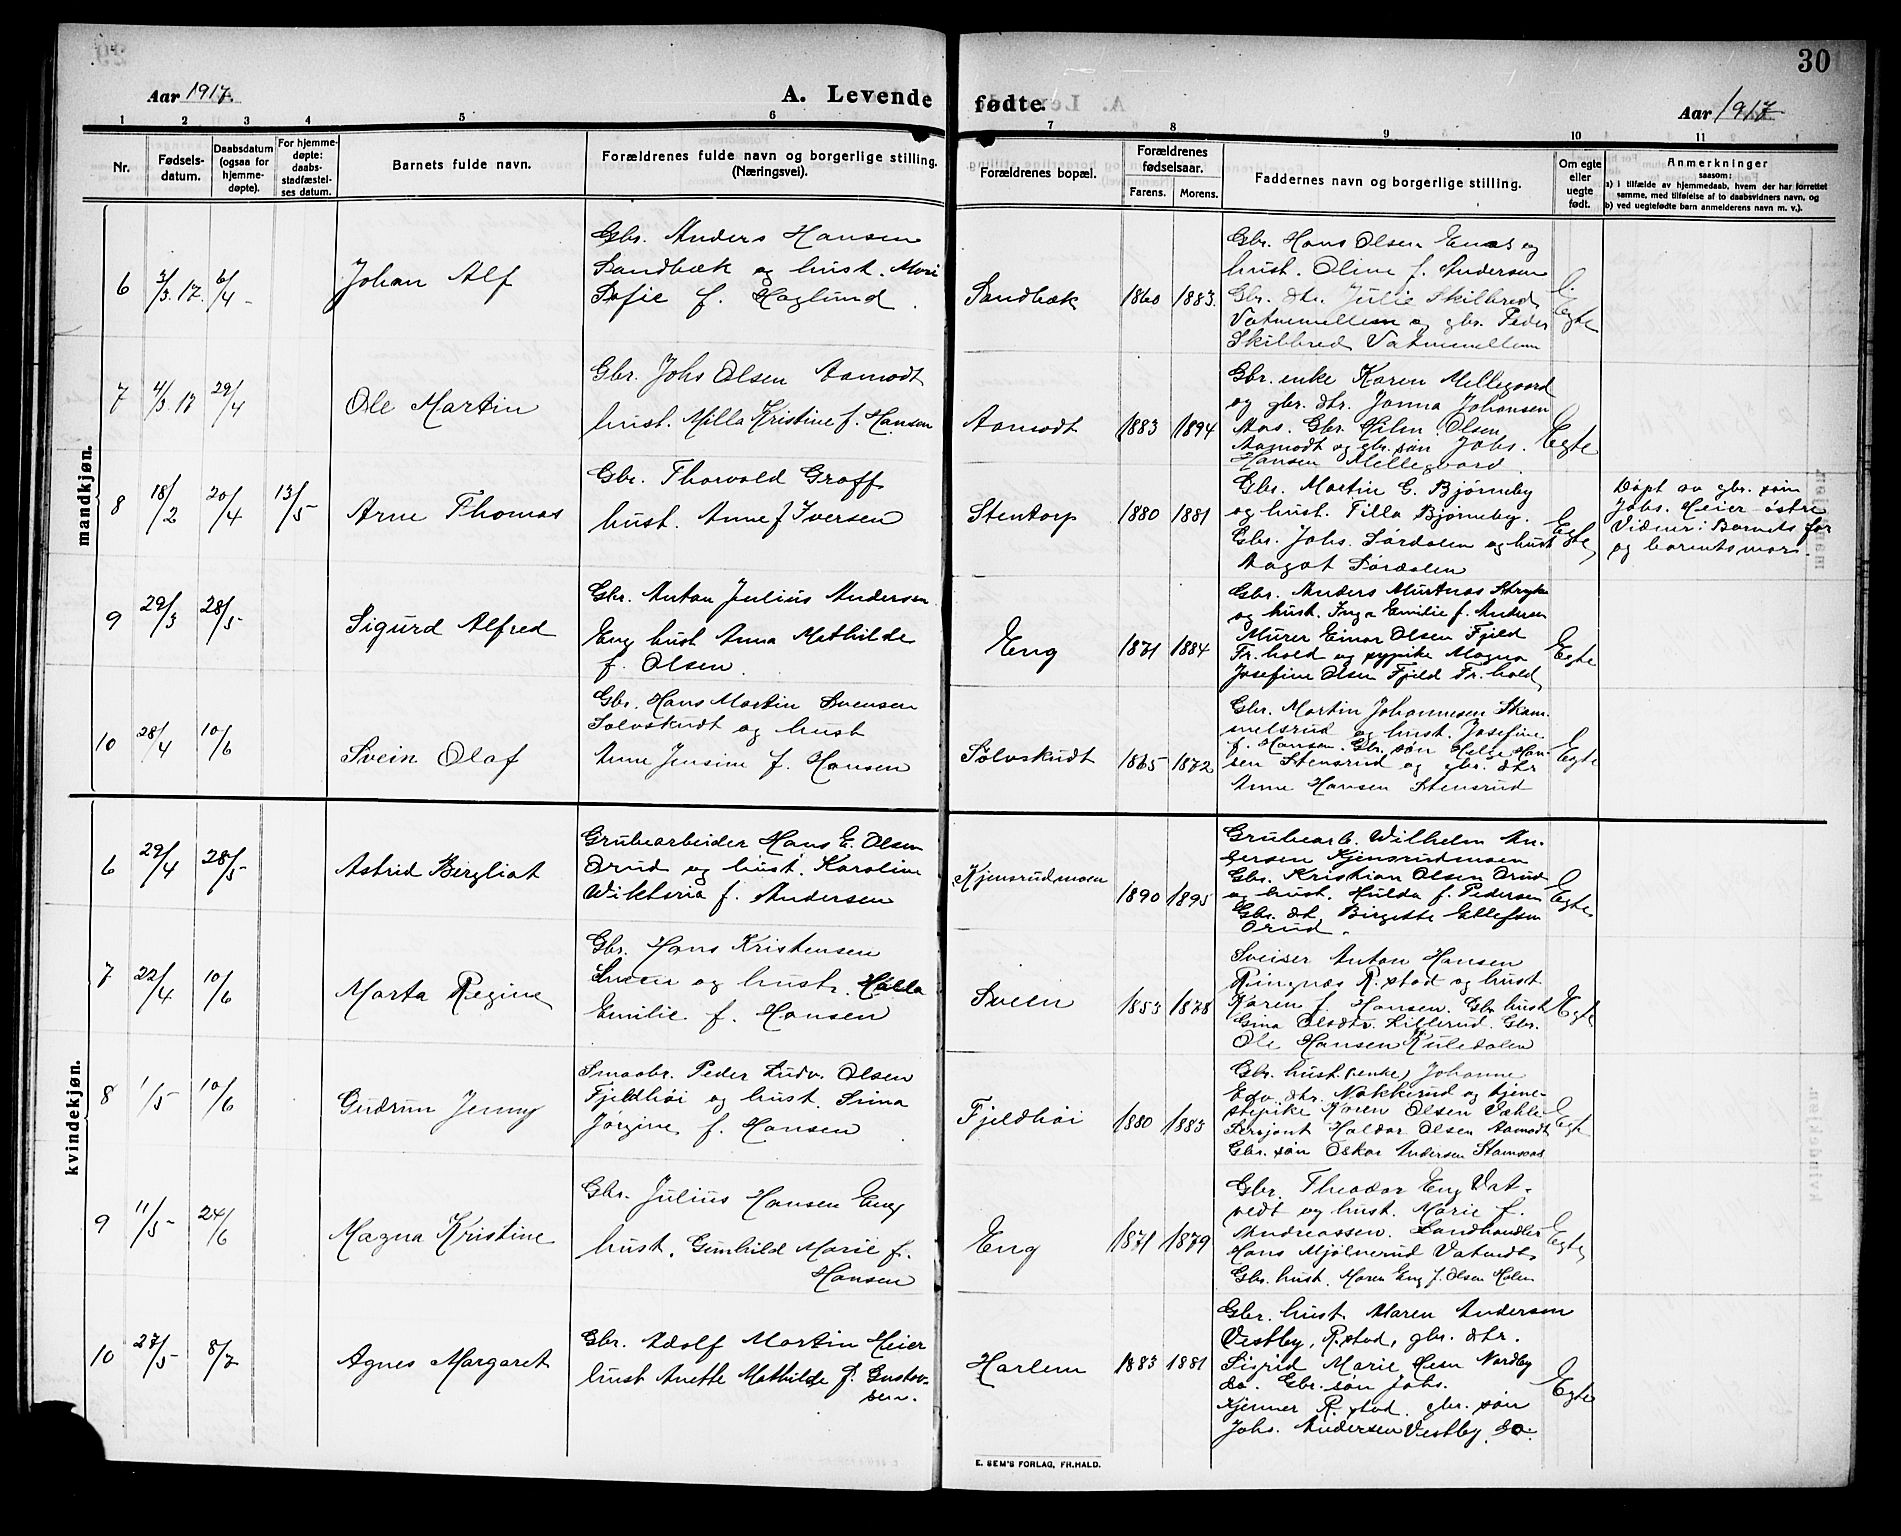 30
Aar 1917.
A. Levende fødte.
Aar 1917
1 2 3 4 5 6 7 8 9 10 11
Nr.
Fødsels-datum.
Daabsdatum (ogsaa for hjemme-døpte).
For hjemme-døpte: daabs-stadfæstel-ses datum.
Barnets fulde navn.
Forældrenes fulde navn og borgerlige stilling. (Næringsvei).
Forældrenes bopæl.
Forældrenes fødselsaar.
Farens. Morens.
Faddernes navn og borgerlige stilling.
Om egte eller uegte født.
Anmerkninger
saasom:
a) i tilfælde av hjemmedaab, hvem der har forrettet samme, med tilføielse af to daabsvidners navn, og
b) ved uegtefødte barn anmelderens navn m. v.).
mandkjøn.
6 2/3.17. 6/4 Johan Alf
Gbr. Anders Hansen
Sandbæk og hust. Mari
Sofie f. Haglund.
Sandbæk 1860 1883.
Gbr. Hans Olsen Enas og
hust. Oline f. Andersen
Gbr. dtr. Julie Skilbred
Vatnemellem og gbr. Peder
Skilbred Vatnemellem
Egte
7 4/3.17 29/4 Ole Martin
Gbr. Johs Olsen Aamodt
hust. Milla Kristine f. Hansen
Aamodt 1883 1894
Gbr. enke Karen Mellegaard
og gbr. dtr. Jonna Johansen
Aas. Gbr. Hilm. Olsen
Aamodt og gbr. søn Johs.
Hansen Mellegaard.
Egte
8 18/2 20/4 13/5 Arne Thomas
Gbr. Thorvald Graff
hust. Anne f Iversen
Stentorp 1880 1881
Gbr. Martin G. Bjørneby
og hust. Tilla Bjørneby.
Gbr. Johs. Sørdalen og hust
Aagot Sørdalen
Egte
Døpt av gbr. søn
Johs. Heier østre
Vidner: Barnets far
og barnets mor.
9 29/3 28/5 Sigurd Alfred
Gbr. Anton Julius Andersen
Eng hust Anna Mathilde
f. Olsen.
Eng 1871 1884
Gbr. Anders Murtnas Stryke
og hust. Inga Emilie f. Andersen
Murer Einar Olsen Fjeld
Fr.hald og sypike Magna
Josefine Olsen Fjeld Fr.hald
Egte
10 28/4 10/6 Svein Olaf
Gbr. Hans Martin Svensen
Sølvskudt og hust
Anne Jensine f. Hansen
Sølvskudt 1865 1872
Gbr. Martin Johannesen Skam-
melsrud og hust. Josefine
f. Hansen. Gbr. søn Helge Han-
sen Stensrud og gbr. dtr
Anne Hansen Stensrud
Egte
kvindekjøn.
6 29/4 28/5 Astrid Bergliot
Grubearbeider Hans E. Olsen
Ørud og hust. Karoline
Wiktoria f. Andersen
Kjensrudmoen 1890 1895
Grubearb. Wilhelm An-
dersen Kjensrudmoen
Gbr. Kristian Olsen Ørud
og hust. Hulda f. Pedersen
Gbr. dt. Birgitte Ellefsen
Ørud.
Egte
7 22/4 10/6 Marta Regine
Gbr. Hans Kristensen
Sveen og hust. Hilda
Emilie f. Hansen
Sveen 1853 1878
Sveiser Anton Hansen
Ringnæs R.stad og hust
Karen f. Hansen. Gbr hust
Gina Olsdtr. Lillerud. Gbr.
Ole Hansen Kuledalen
Egte
8 1/5 10/6 Gudrun Jenny
Smaabr. Peder Ludv. Olsen
Fjeldhøi og hust. Srina
Jørgine f. Hansen
Fjeldhøi 1880 1883
Gbr. hust. (enke) Johanne
Edv. dtr. Nakkerud og tjene-
stepike Karen Olsen Væhle
Sersjant Haldor Olsen Aamodt
Gbr. søn Oskar Andersen Stamsaas
Egte
9 11/5 24/6 Magna Kristine
Gbr. Julius Hansen Eng
hust. Gunhild Marie f.
Hansen
Eng 1871 1879
Gbr. Theodor Eng Vat-
vedt og hust. Marie f.
Andreassen. Landhandler
Hans Mjølnerud Vatvedt
Gbr. hust. Maren Eng f. Olsen Holen
Egte
10 27/5 8/7 Agnes Margaret
Gbr. Adolf Martin Heier
hust Anette Mathilde f. Gustav-
sen.
Harlem 1883 1881
Gbr. hust. Maren Andersen
Vestby, R.stad, gbr. dtr.
Sigrid Marie Hesn Nordby
do. Gbr. søn Johs.
Kjenner R.stad. gbr. søn
Johs. Andersen Vestby. do.
Egte
E. SEM'S FORLAG, FR.HALD.